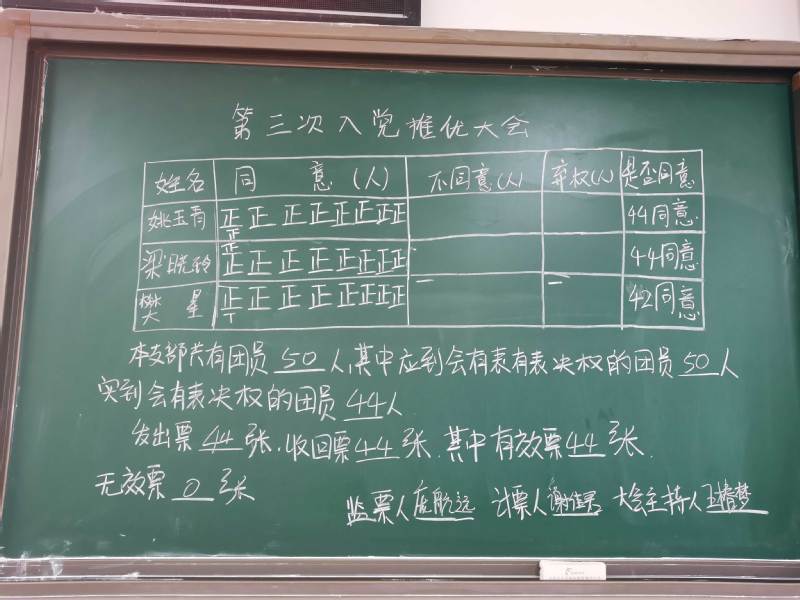 第三次入党推优大会
姓名 同意(人) 不同意(人) 弃权(人) 是否同意
姚玉青 正正正正正正正正正 44同意
梁晓玲 正正正正正正正正正 44同意
樊星 正正正正正正正正 一 一 42同意
本支部共有团员50人,其中应到会有表有表决权的团员50人
实到会有表决权的团员44人
发出票44张.收回票44张.其中有效票44张.
无效票0张
监票人庞航远 计票人谢佳男 大会主持人王椿梦